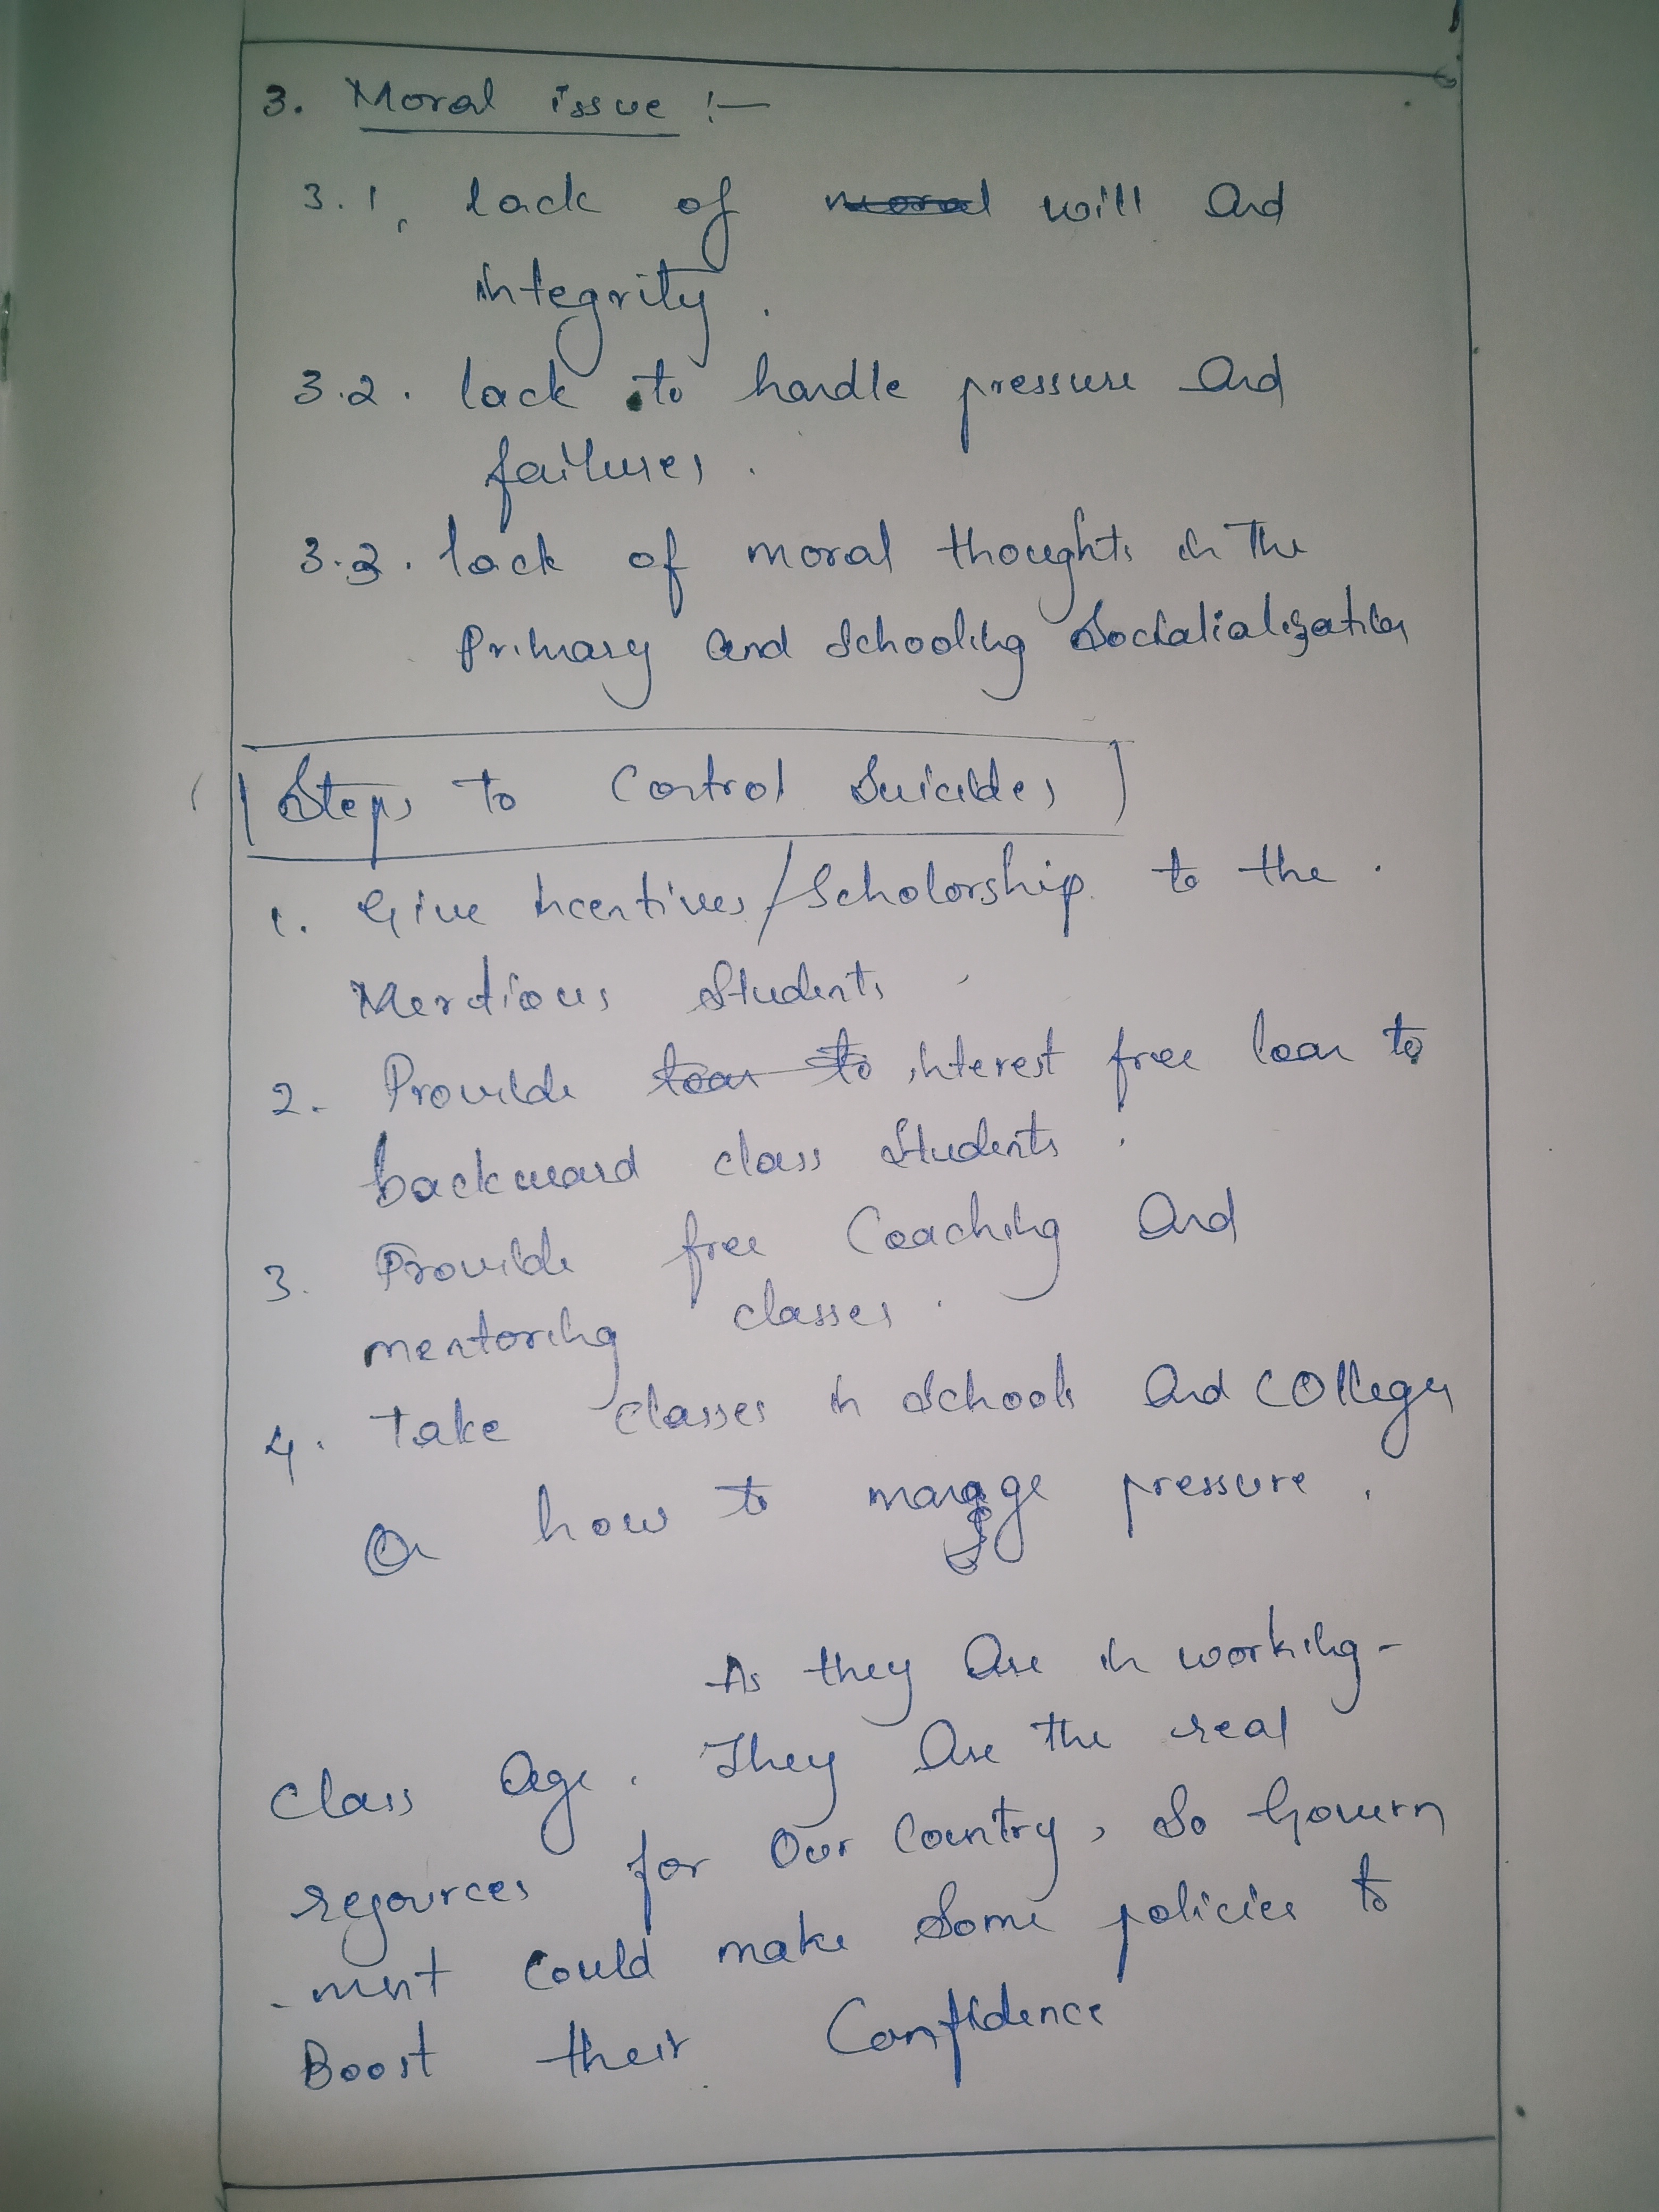 3. Moral issue :-
3.1. lack of moral will and
integrity.
3.2. lack to handle pressure and
failures.
3.3. lack of moral thoughts in the
Primary and schooling Socialialization
Steps to Control Suicides
1. Give incentives/Scholorship to the
Meritious students
2. Provide loan to interest free loan to
backward class students.
3. Provide free Coaching and
mentoring classes.
4. Take classes in schools and colleges
On how to manage pressure.
As they are in working-
class age. They are the real
resources for Our Country, so Govern
-ment could make some policies to
Boost their Confidence